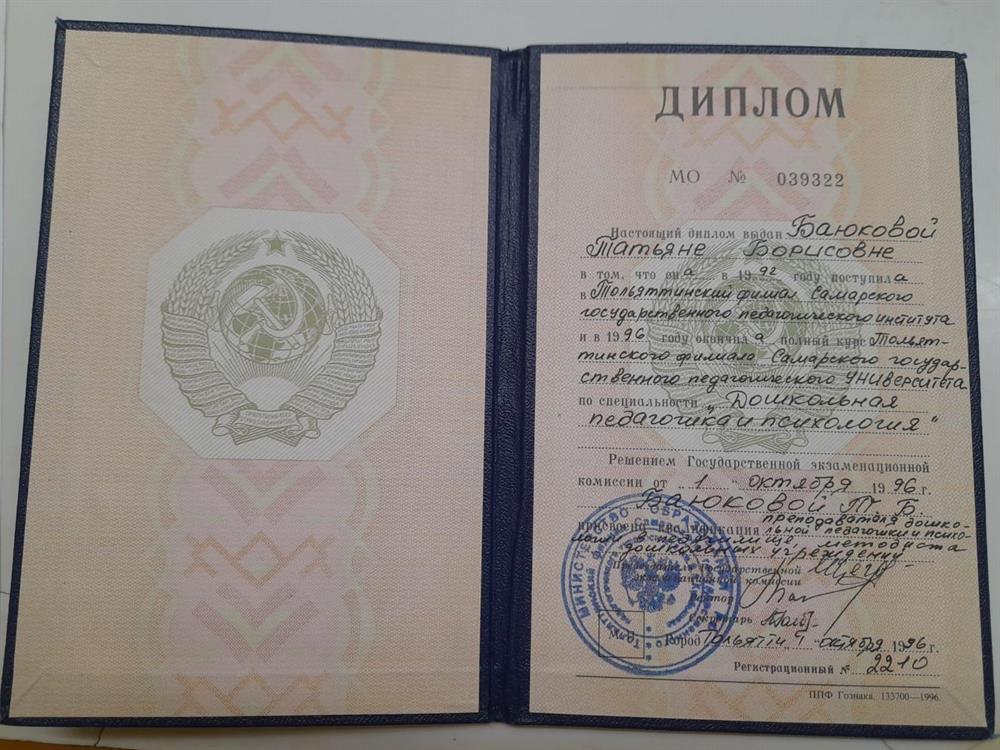 ДИПЛОМ
МО № 039322
Настоящий диплом выдан Баюковой
Татьяне Борисовне
в том, что она в 1992 году поступила
в Тольяттинский филиал Самарского
государственного педагогического института
и в 1996 году окончила полный курс Тольят-
тинского филиала Самарского государ-
ственного педагогического УНИверситета
по специальности „Дошкольная
педагогика и психология"
Решением Государственной экзаменационной
комиссии от „1" октября 1996 г.
Баюковой Т. Б.
присвоена квалификация преподавателя дошко-
льной педагогики и психо-
логии в педучилище, методиста
дошкольных учреждений
Председатель Государственной
экзаменационной комиссии
Ректор
Секретарь
Город Тольятти, 1 октября 1996 г.
Регистрационный № 2210
МИНИСТЕРСТВО ОБРАЗОВАНИЯ
М.П.
ППФ Гознака. 133700—1996.